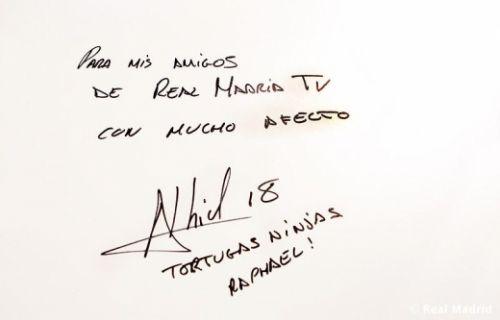 PARA MIS AMIGOS
DE REAL MADRID TV
CON MUCHO AFECTO
18
TORTUGAS NINJAS
RAPHAEL!
© Real Madrid